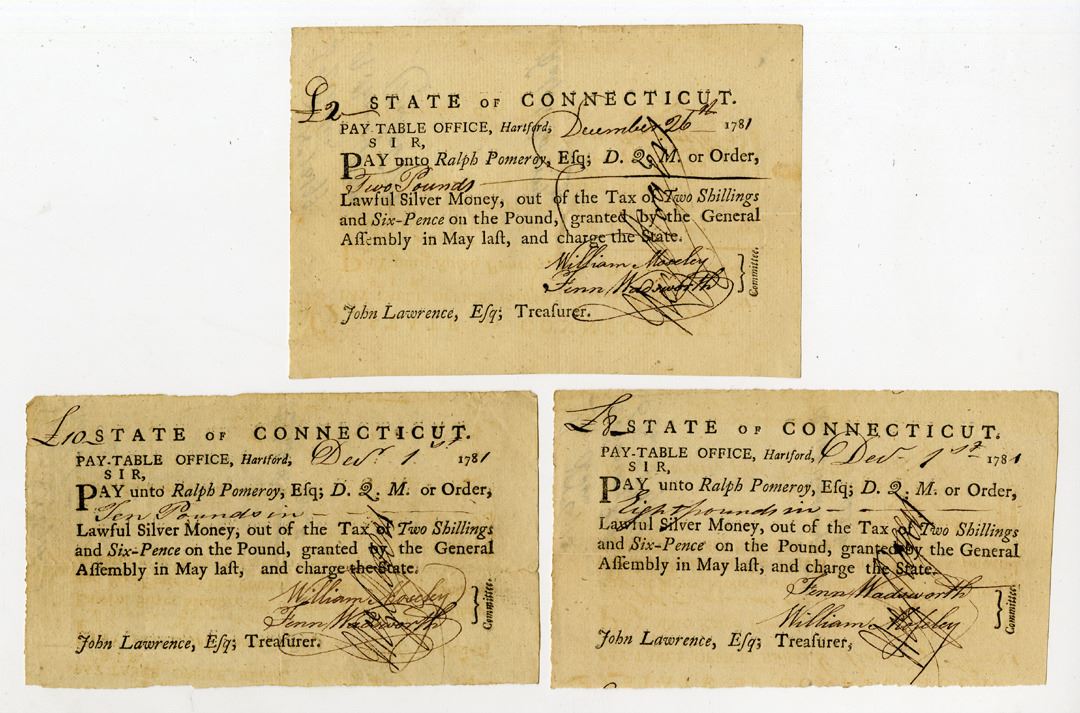 £2 STATE OF CONNECTICUT.
PAY-TABLE OFFICE, Hartford, December 26th 1781
SIR,
PAY unto Ralph Pomeroy, Eſq; D. Q. M. or Order,
Two Pounds
Lawful Silver Money, out of the Tax of Two Shillings
and Six-Pence on the Pound, granted by the General
Aſſembly in May laſt, and charge the State.
William Moseley
Fenn Wadsworth
Committee.
John Lawrence, Eſq; Treaſurer.
£10 STATE OF CONNECTICUT.
PAY-TABLE OFFICE, Hartford, Decr. 1st 1781
SIR,
PAY unto Ralph Pomeroy, Eſq; D. Q. M. or Order,
Ten Pounds in
Lawful Silver Money, out of the Tax of Two Shillings
and Six-Pence on the Pound, granted by the General
Aſſembly in May laſt, and charge the State.
William Moseley
Fenn Wadsworth
Committee.
John Lawrence, Eſq; Treaſurer.
£8 STATE OF CONNECTICUT.
PAY-TABLE OFFICE, Hartford, Decr 1st 1781
SIR,
PAY unto Ralph Pomeroy, Eſq; D. Q. M. or Order,
Eight pounds in
Lawful Silver Money, out of the Tax of Two Shillings
and Six-Pence on the Pound, granted by the General
Aſſembly in May laſt, and charge the State.
Fenn Wadsworth
William Moseley
Committee.
John Lawrence, Eſq; Treaſurer,